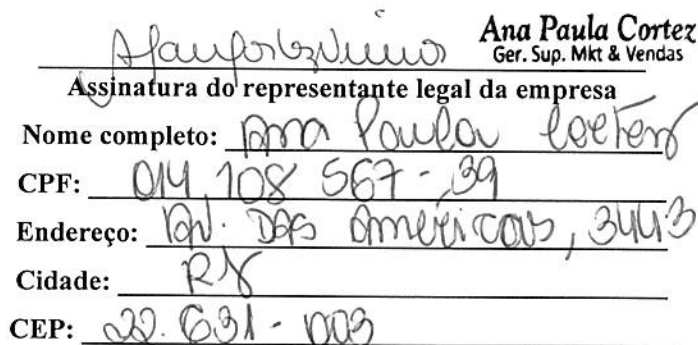 Ana Paula Cortez
Ger. Sup. Mkt & Vendas
Assinatura do representante legal da empresa
Nome completo: Ana Paula Cortez
CPF: 014 108 567-39
Endereço: AV. DAS AMÉRICAS, 3443
Cidade: RJ
CEP: 22.631-003